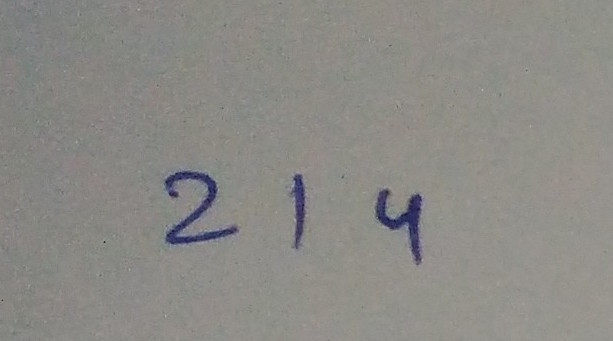 2 1 4